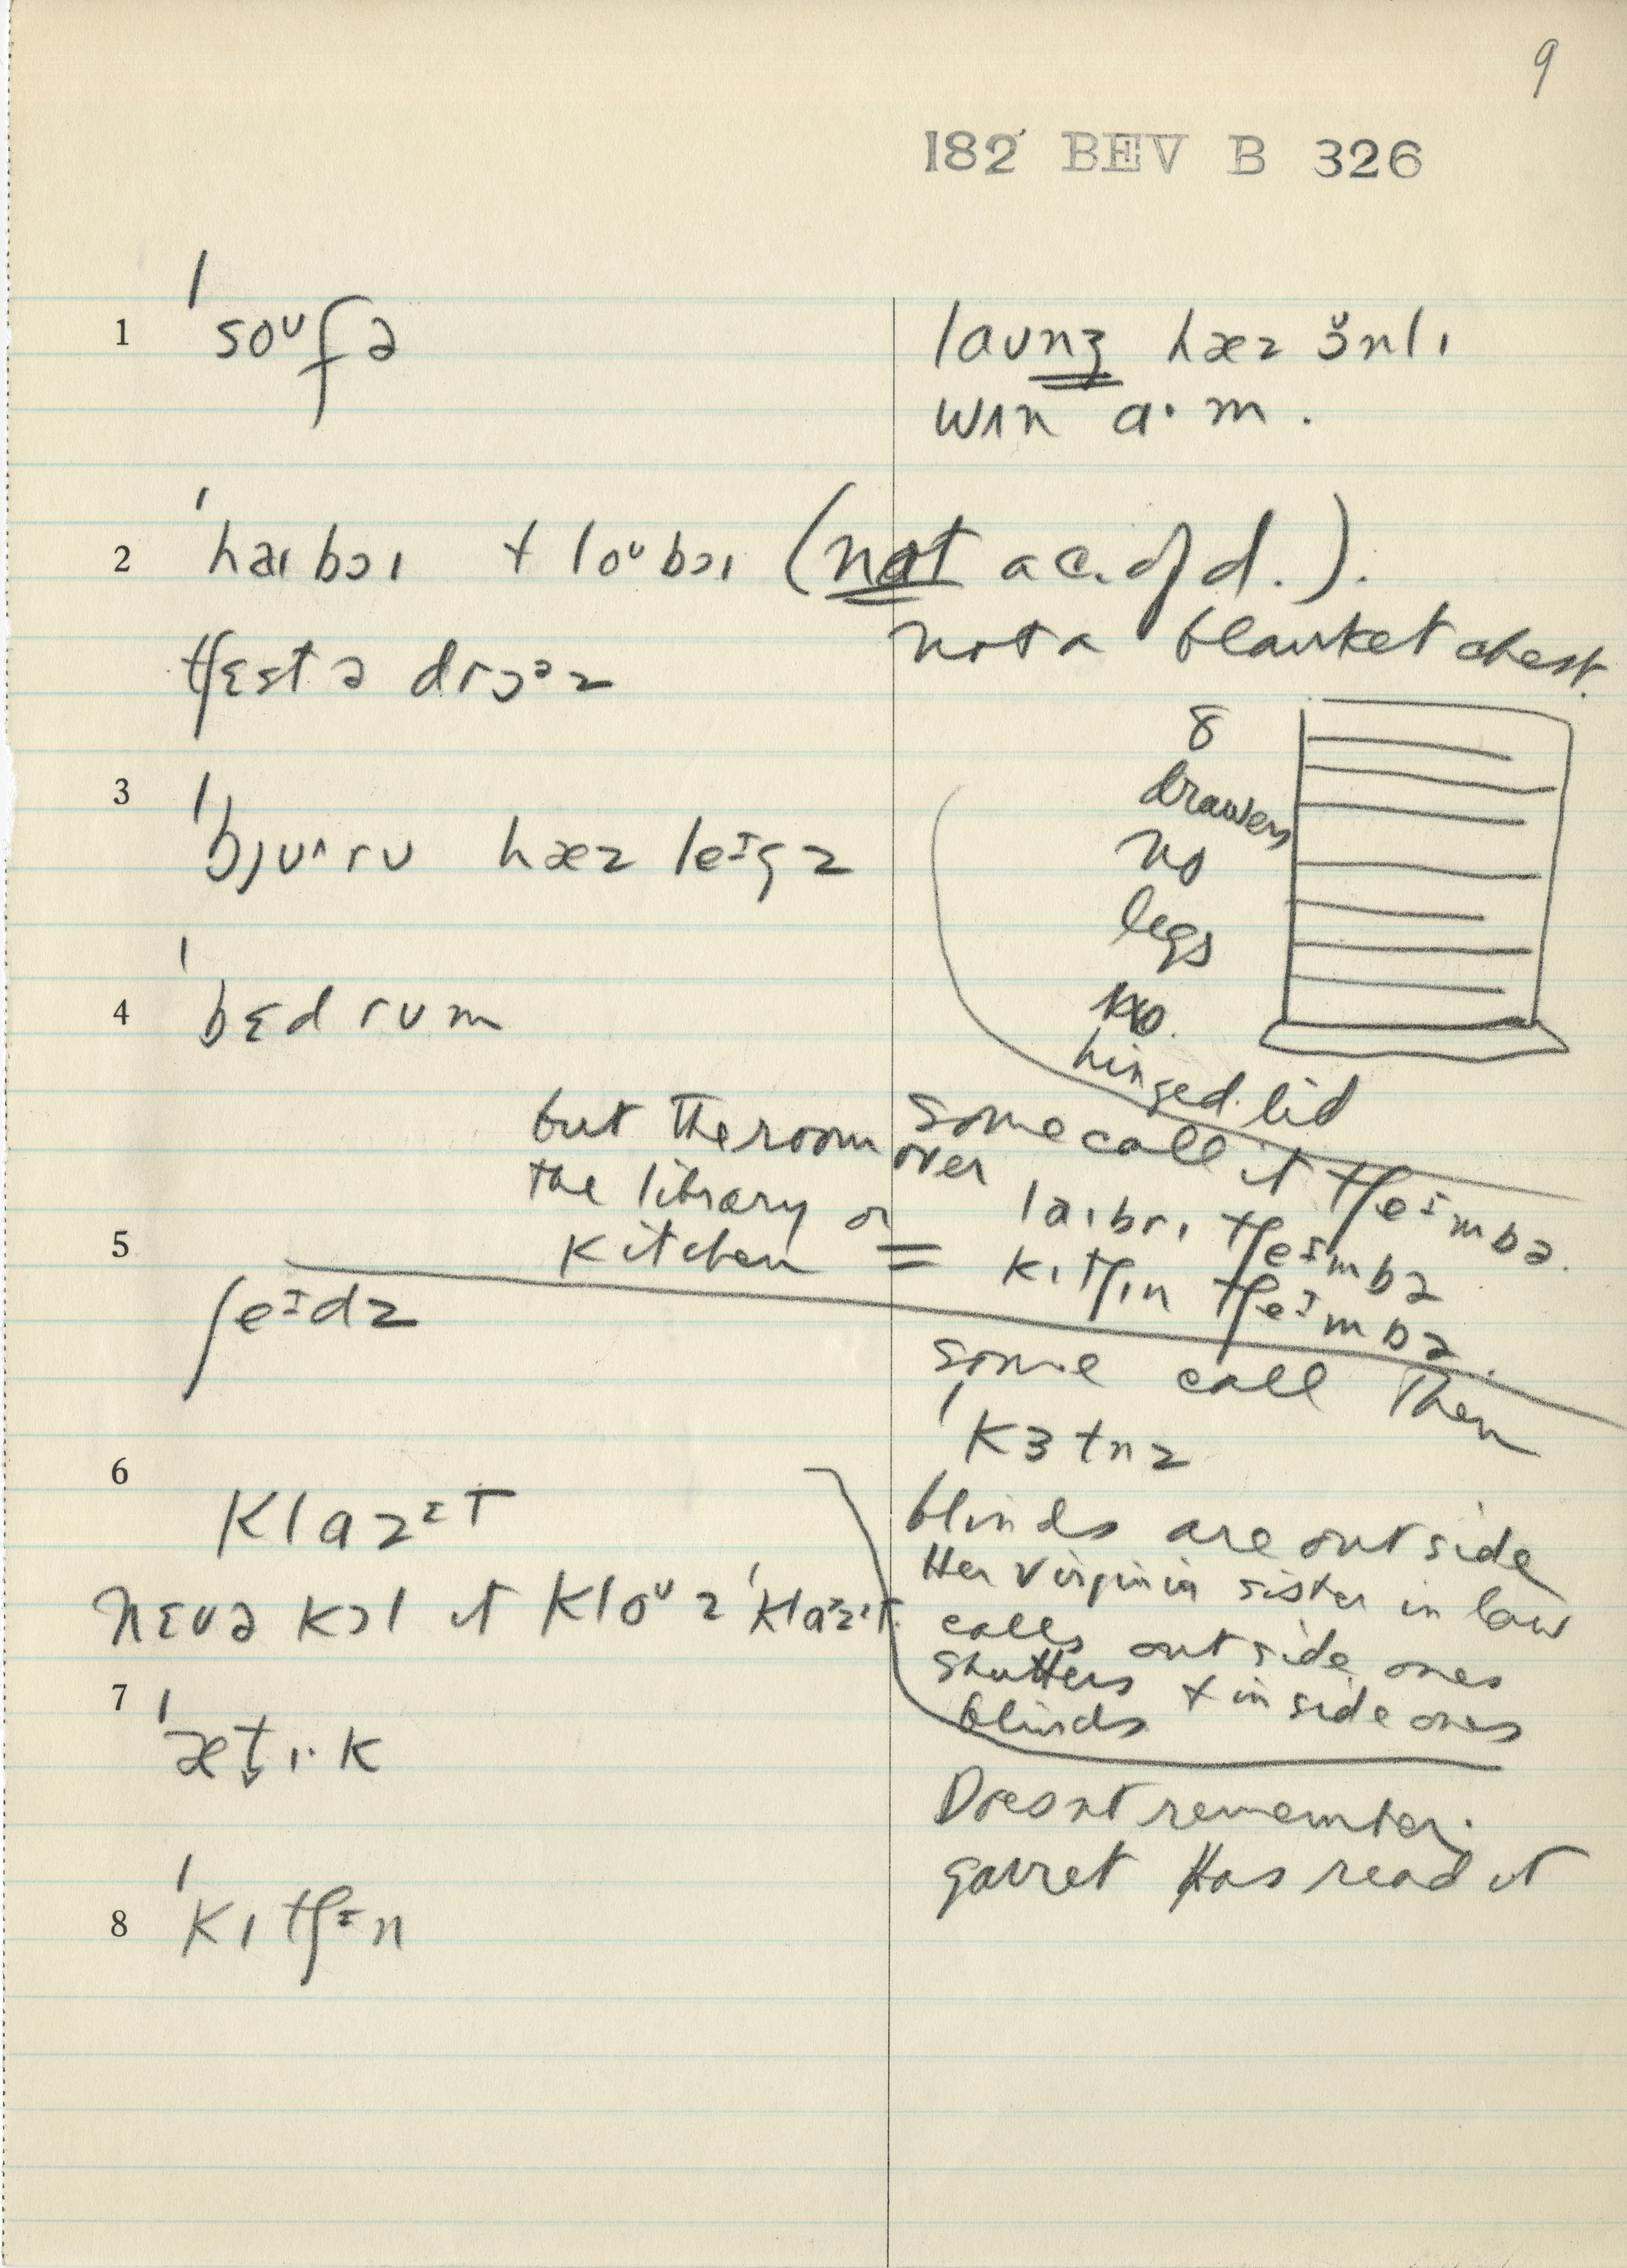 9
182 BEV B 326
1 ˈsoᵘfə
laʊnʒ hæz ɔ̆nlɪ
wʌn a·m.
2 ˈhaɪbɔɪ + loᵘbɔɪ (not a c. of d.).
not a blanket chest.
tʃɛst ə drɔᵊz
8
drawers
no
legs
no
hinged lid
3 ˈbjʊ^rʊ hæz leᴵgz
4 ˈbɛdrʊm
some call it tʃeᴵmbə.
but the room over
the library or
kitchen =
laɪbrɪ tʃeᴵmbə
kɪtʃɪn tʃeᴵmbə.
5 ʃeᴵdz
some call them
ˈkɜtnz
blinds are outside
Her Virginia sister in law
calls outside ones
shutters + inside ones
blinds
6 klazᴵt
nɛvə kɔl it kloᵘzˈklazᴵt
7 ˈæt̬ɪ·k
Doesnt remember.
garret Has read it
8 ˈkɪtʃᴵn